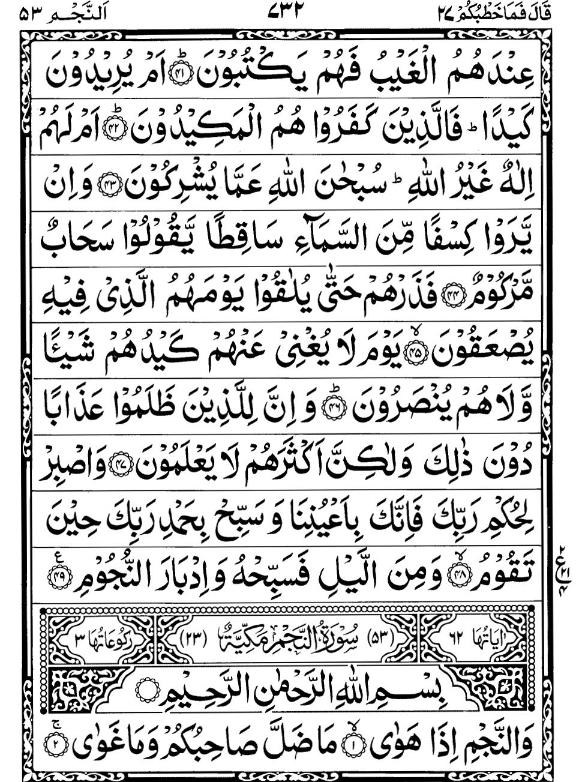 قَالَ فَمَا خَطْبُكُمْ ٢٧ ٧٣٢ اَلنَّجْم ٥٣
عِنْدَهُمُ الْغَيْبُ فَهُمْ يَكْتُبُوْنَ ؕ﴿٤١﴾ اَمْ يُرِيْدُوْنَ
كَيْدًا ؕ فَالَّذِيْنَ كَفَرُوْا هُمُ الْمَكِيْدُوْنَ ؕ﴿٤٢﴾ اَمْ لَهُمْ
اِلٰهٌ غَيْرُ اللّٰهِ ؕ سُبْحٰنَ اللّٰهِ عَمَّا يُشْرِكُوْنَ ﴿٤٣﴾ وَاِنْ
يَّرَوْا كِسْفًا مِّنَ السَّمَآءِ سَاقِطًا يَّقُوْلُوْا سَحَابٌ
مَّرْكُوْمٌ ﴿٤٤﴾ فَذَرْهُمْ حَتّٰى يُلٰقُوْا يَوْمَهُمُ الَّذِىْ فِيْهِ
يُصْعَقُوْنَ ۙ﴿٤٥﴾ يَوْمَ لَا يُغْنِىْ عَنْهُمْ كَيْدُهُمْ شَيْـًٔا
وَّلَا هُمْ يُنْصَرُوْنَ ؕ﴿٤٦﴾ وَاِنَّ لِلَّذِيْنَ ظَلَمُوْا عَذَابًا
دُوْنَ ذٰلِكَ وَلٰكِنَّ اَكْثَرَهُمْ لَا يَعْلَمُوْنَ ﴿٤٧﴾ وَاصْبِرْ
لِحُكْمِ رَبِّكَ فَاِنَّكَ بِاَعْيُنِنَا وَسَبِّحْ بِحَمْدِ رَبِّكَ حِيْنَ
تَقُوْمُ ۙ﴿٤٨﴾ وَمِنَ الَّيْلِ فَسَبِّحْهُ وَاِدْبَارَ النُّجُوْمِ ﴿٤٩﴾ ع
٢ ع ٢١ ٤
اٰيَاتُهَا ٦٢ (٥٣) سُوْرَةُ النَّجْمِ مَكِّيَّةٌ (٢٣) رُكُوْعَاتُهَا ٣
بِسْمِ اللّٰهِ الرَّحْمٰنِ الرَّحِيْمِ
وَالنَّجْمِ اِذَا هَوٰى ۙ﴿١﴾ مَا ضَلَّ صَاحِبُكُمْ وَمَا غَوٰى ۚ﴿٢﴾